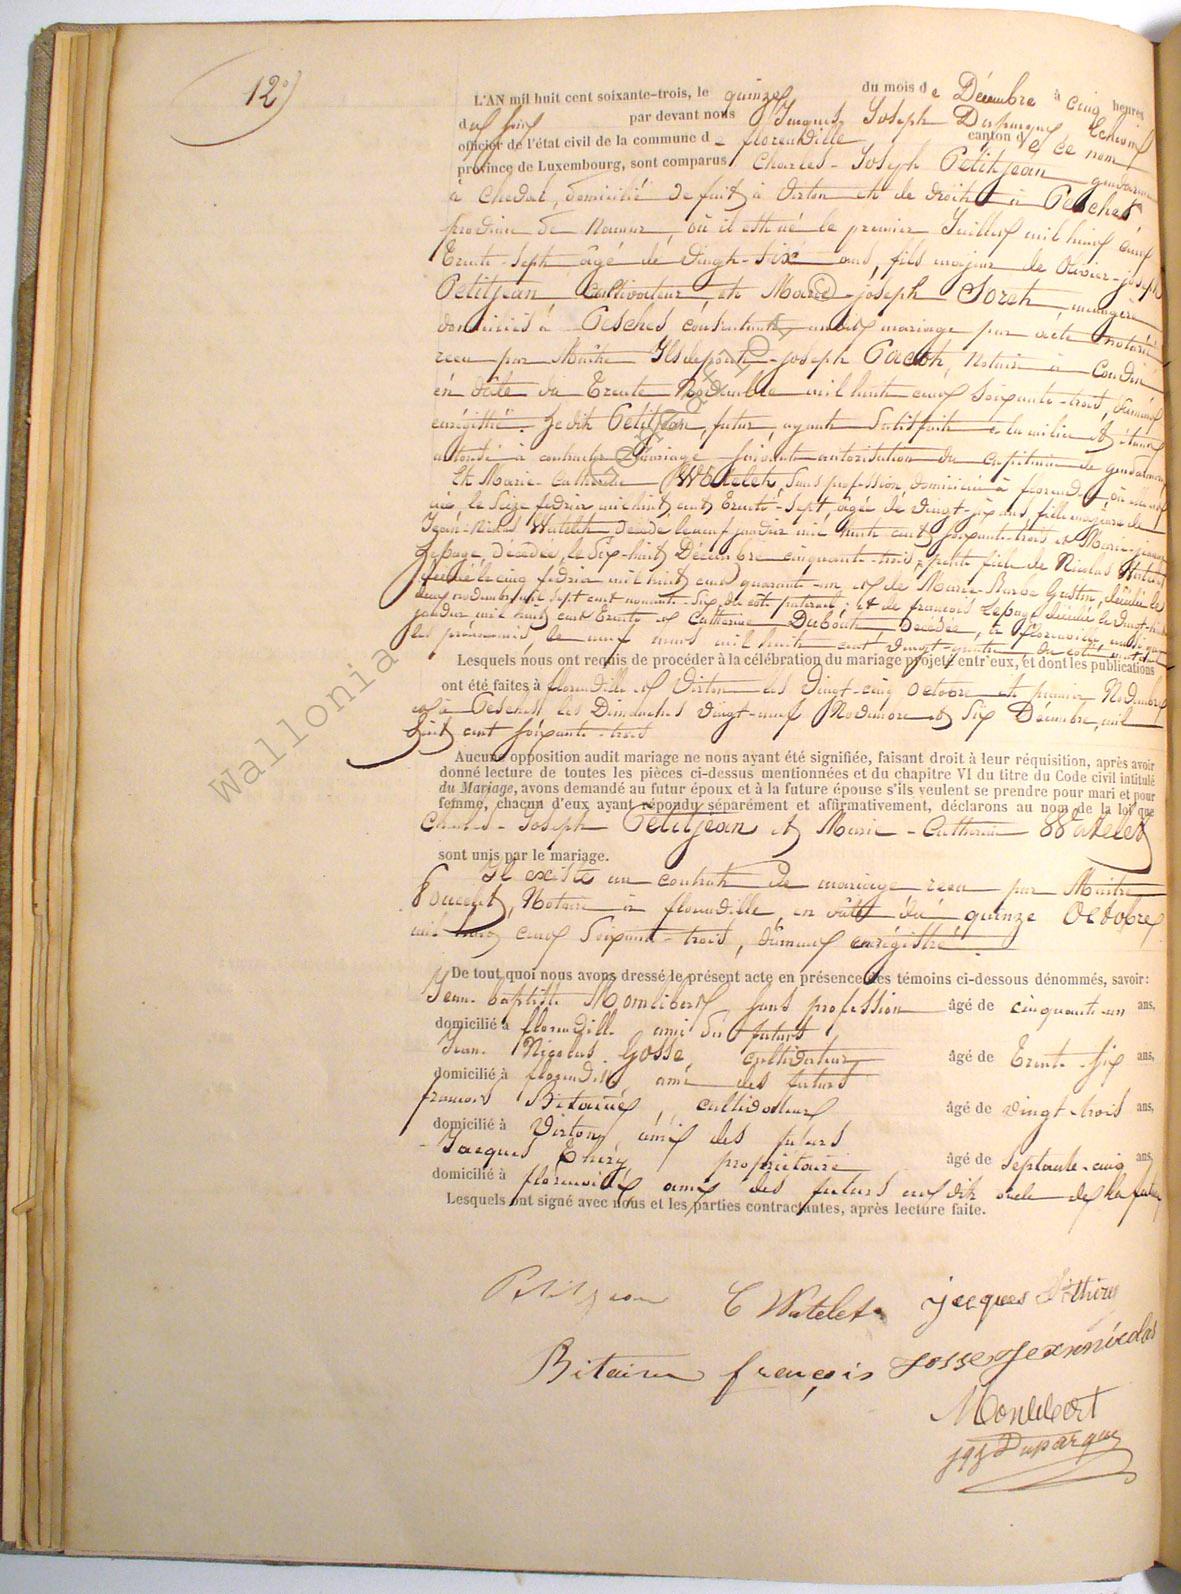 12°)
L'AN mil huit cent soixante-trois, le quinze du mois de Décembre à cinq heures
du soir par devant nous Jacques Joseph Duparque, Echevin
officier de l'état civil de la commune de florenville canton de ce nom
province de Luxembourg, sont comparus Charles-Joseph Petitjean gendarme
à cheval, domicilié de fait à Virton et de droit à Pesches
province de Namur, où il est né le premier Juillet mil huit cent
Trente-sept âgé de vingt-six ans, fils majeur de Olivier-joseph
Petitjean Cultivateur, et Marie-joseph Soret, ménagère
domiciliés à Pesches consentants audit mariage par acte notarié
recu par Maitre joseph Notaire à
en date du Trente Novembre mil huit cent soixante-trois, dument
enrégistré. Ledit Petitjean, futur, ayant satisfait à la milice et étant
autorisé à contracter mariage suivant autorisation du capitaine de gendarmerie
Et Marie-Catherine Watelet, sans profession, domiciliée à florenville où est née
le seize février mil huit cent Trente-sept, âgée de vingt-six ans, fille majeure de
Jean-Nicolas Watelet décédé le neuf janvier mil huit cent soixante-trois et Marie-jeanne
Lepage, décédée, le dix-huit Décembre cinquante-trois, petite fille de Nicolas Watelet
décédé le cinq février mil huit cent quarante-un et de Marie-Barbe Gustin, décédée le
deux novembre mil sept cent nonante-six du coté paternel; et de francois Lepage décédé le vingt-huit
janvier mil huit cent Trente et Catherine décédée, à florenville aussi que
les prénommés, le neuf mars mil huit cent vingt-quatre, du coté maternel
Lesquels nous ont requis de procéder à la célébration du mariage projeté entr'eux, et dont les publications
ont été faites à florenville et Virton les vingt-cinq octobre et premier Novembre
et à Pesches les Dimanches vingt-neuf Novembre et six Décembre, mil
huit cent soixante-trois
Aucune opposition audit mariage ne nous ayant été signifiée, faisant droit à leur réquisition, après avoir
donné lecture de toutes les pièces ci-dessus mentionnées et du chapitre VI du titre du Code civil intitulé
du Mariage, avons demandé au futur époux et à la future épouse s'ils veulent se prendre pour mari et pour
femme, chacun d'eux ayant répondu séparément et affirmativement, déclarons au nom de la loi que
Charles-Joseph Petitjean et Marie-Catherine Watelet
sont unis par le mariage.
Il existe un contrat de mariage recu par Maitre
Poncelet, Notaire à florenville, en date du quinze Octobre
mil huit cent soixante-trois, dument enrégistré.
De tout quoi nous avons dressé le présent acte en présence des témoins ci-dessous dénommés, savoir:
Jean-baptiste Monlibert, sans profession âgé de cinquante-un ans,
domicilié à florenville ami des futurs
Jean Nicolas Gosse, cultivateur âgé de Trente-six ans,
domicilié à florenville, ami des futurs
francois Bitaine, cultivateur âgé de vingt-trois ans,
domicilié à Virton ami des futurs
Jacques Thiry propriétaire âgé de septante-cinq ans,
domicilié à florenville ami des futurs oncle de la future
Lesquels ont signé avec nous et les parties contractantes, après lecture faite.
Petitjean C Watelet jacques Thiry
Bitaine françois Gosse jean nicolas
Monlibert
Duparque
Wallonia